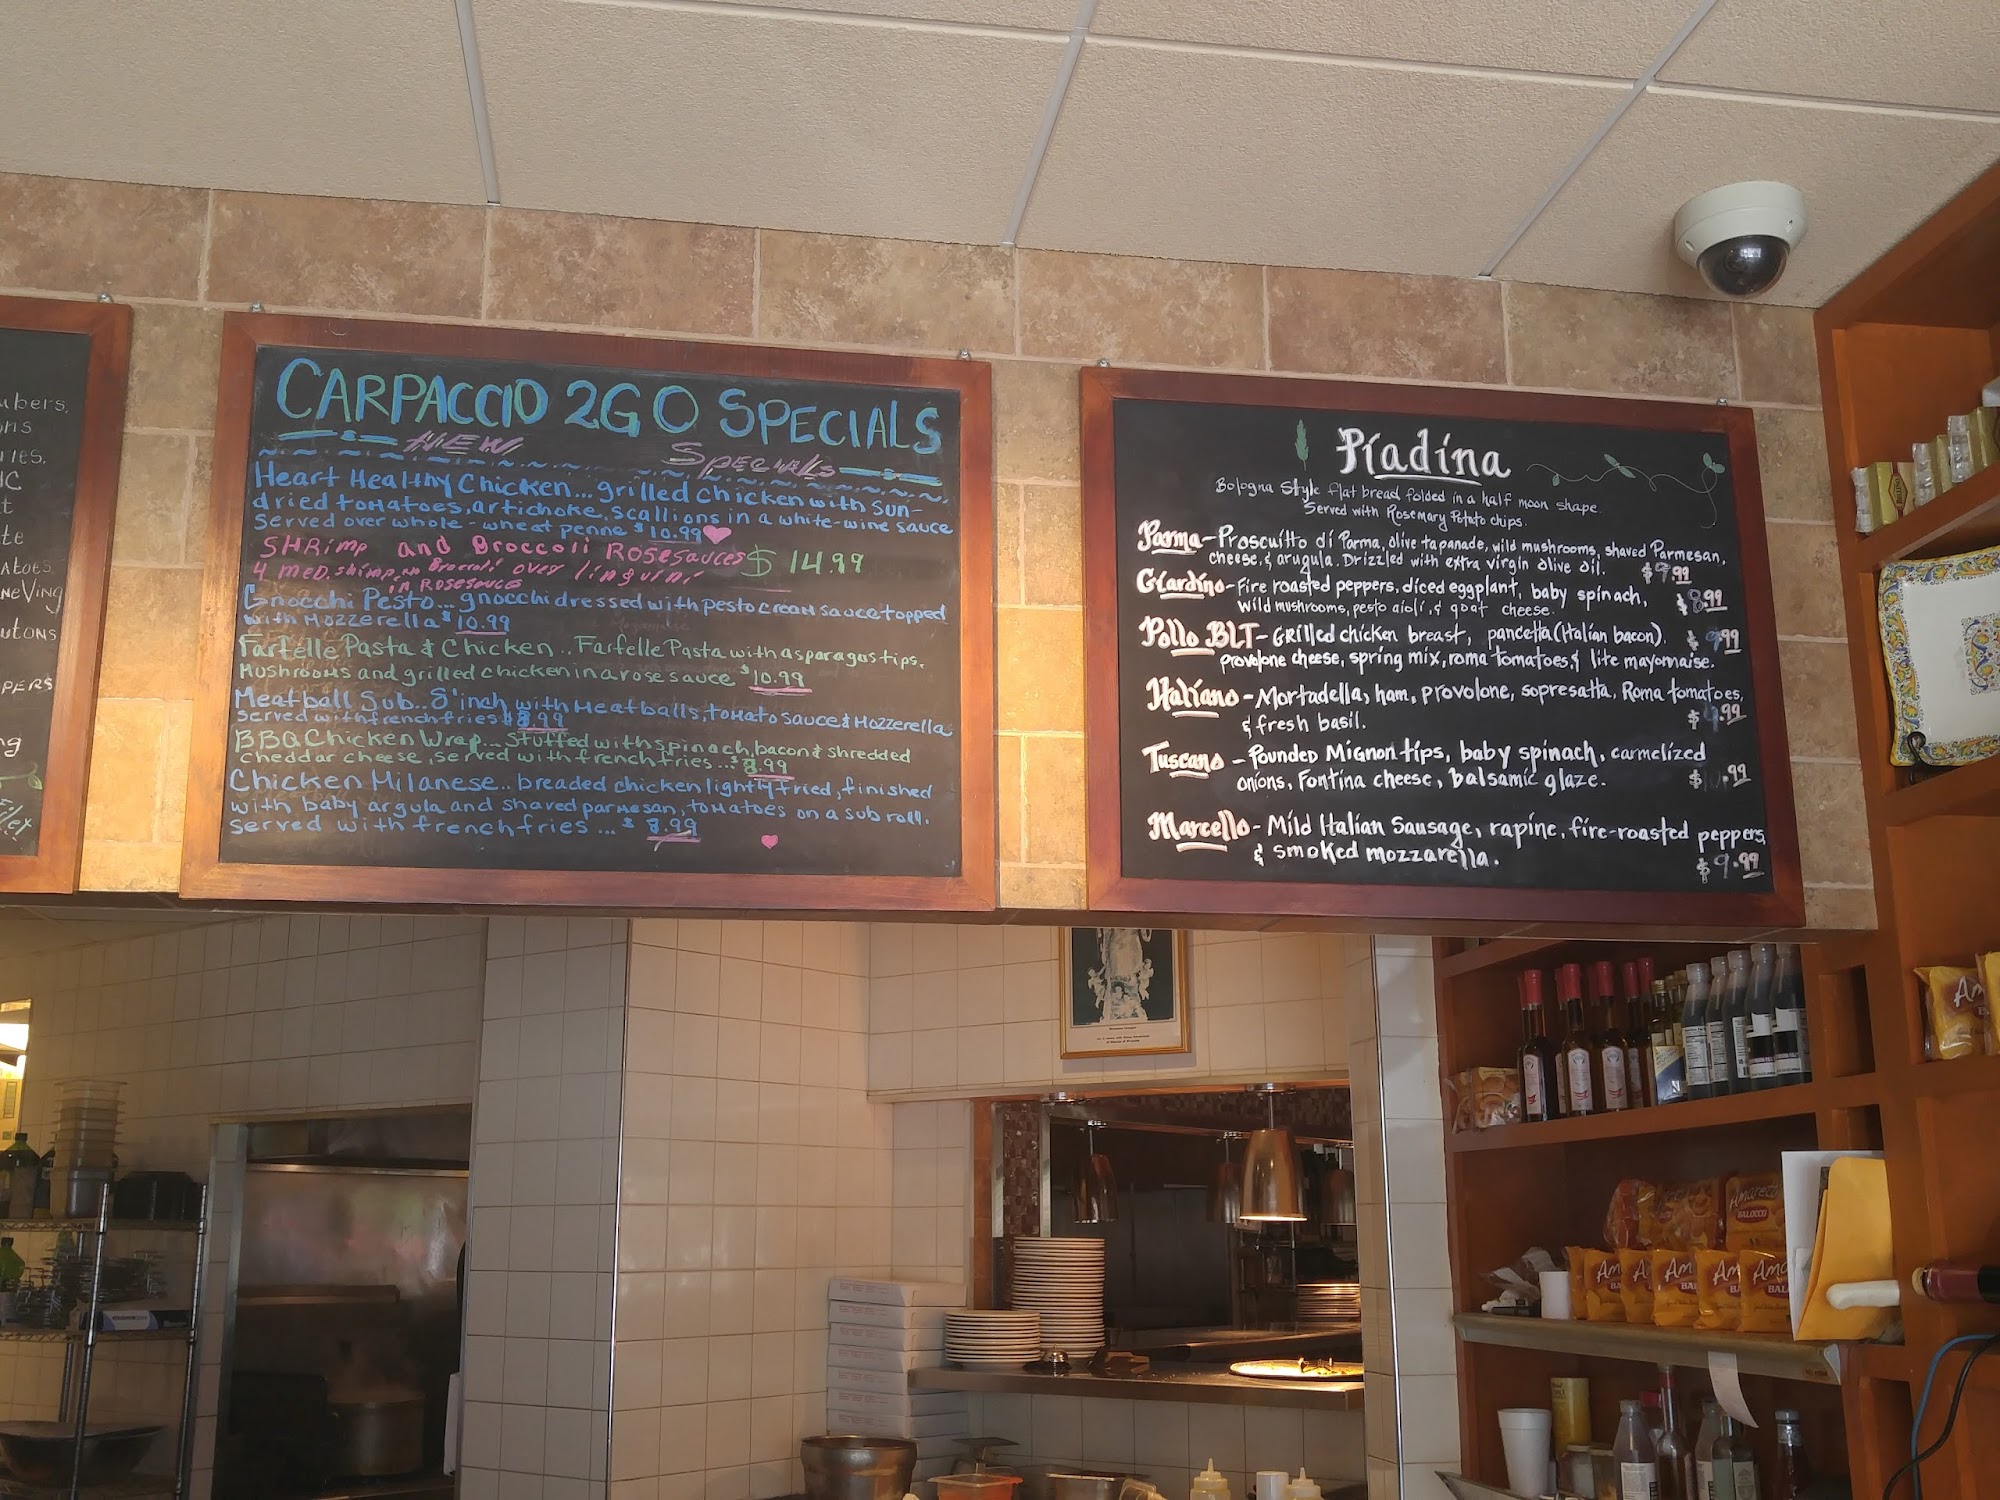 CARPACCIO 2GO SPECIALS
NEW SPECIALS
Heart Healthy Chicken... grilled chicken with sun-
dried tomatoes, artichoke, scallions in a white-wine sauce
served over whole-wheat penne $10.99
SHRimp and Broccoli ROSE sauces $14.99
4 med. shimp, Broccoli over linguini
in ROSE sauce
Gnocchi Pesto... gnocchi dressed with pesto cream sauce topped
with Mozzerella $10.99
Farfelle Pasta & Chicken.. Farfelle Pasta with asparagus tips,
Mushrooms and grilled chicken in a rose sauce $10.99
Meatball Sub.. 8'inch with Meatballs, tomato sauce & Mozzerella
served with french fries $8.99
BBQ Chicken Wrap... Stuffed with spinach, bacon & shredded
cheddar cheese, served with french fries... $8.99
Chicken Milanese.. breaded chicken lightly fried, finished
with baby argula and shaved parmesan, tomatoes on a sub roll.
served with french fries... $8.99
Piadina
Bologna Style flat bread folded in a half moon shape.
Served with Rosemary Potato chips.
Parma - Proscuitto di Parma, olive tapanade, wild mushrooms, shaved Parmesan,
cheese, & arugula. Drizzled with extra virgin olive oil. $9.99
Giardino - Fire roasted peppers, diced eggplant, baby spinach,
wild mushrooms, pesto aioli, & goat cheese. $8.99
Pollo BLT - Grilled chicken breast, pancetta (Italian bacon). $9.99
provolone cheese, spring mix, roma tomatoes, & lite mayonnaise.
Italiano - Mortadella, ham, provolone, sopresatta, Roma tomatoes,
& fresh basil. $9.99
Tuscano - Pounded Mignon tips, baby spinach, carmelized
onions, Fontina cheese, balsamic glaze. $10.99
Marcello - Mild Italian Sausage, rapine, fire-roasted peppers
& smoked mozzarella. $9.99
ubers,
PERS
Amaretti
BALOCCO